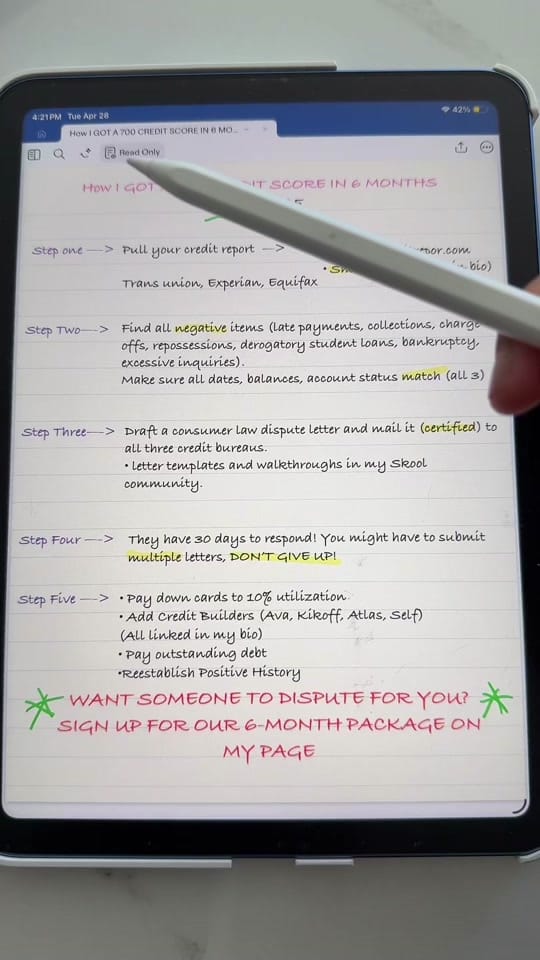 4:21PM Tue Apr 28
42%
How I GOT A 700 CREDIT SCORE IN 6 MO...
Read Only
How I GOT CREDIT SCORE IN 6 MONTHS
Step one ---> Pull your credit report --->
Trans union, Experian, Equifax
bio)
Step Two---> Find all negative items (late payments, collections, charge
offs, repossessions, derogatory student loans, bankruptcy,
excessive inquiries).
Make sure all dates, balances, account status match (all 3)
Step Three---> Draft a consumer law dispute letter and mail it (certified) to
all three credit bureaus.
• letter templates and walkthroughs in my Skool
community.
Step Four ---> They have 30 days to respond! You might have to submit
multiple letters, DON'T GIVE UP!
Step Five ---> • Pay down cards to 10% utilization
• Add Credit Builders (Ava, Kikoff, Atlas, Self)
(All linked in my bio)
• Pay outstanding debt
•Reestablish Positive History
WANT SOMEONE TO DISPUTE FOR YOU?
SIGN UP FOR OUR 6-MONTH PACKAGE ON
MY PAGE